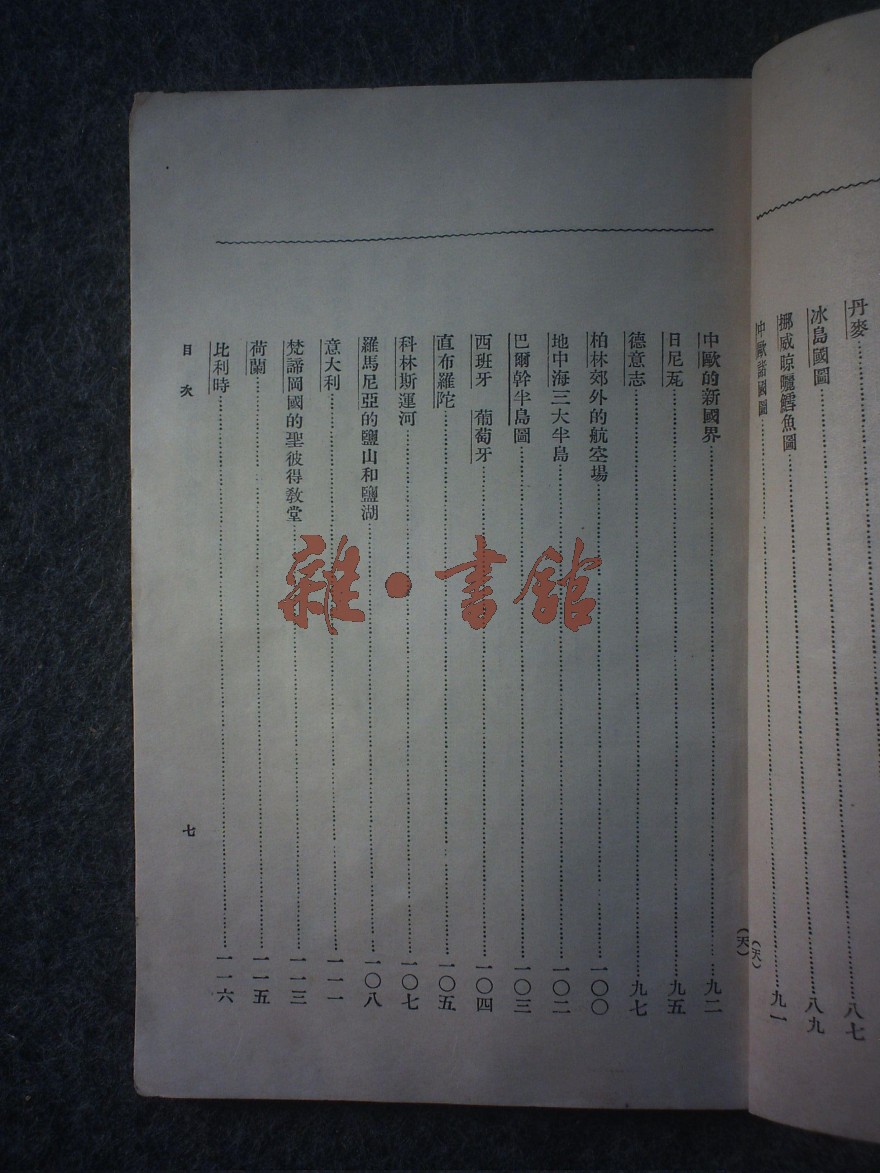 丹麥……八七
冰島國圖……八九
挪威晾曬鱈魚圖……九一
中歐諸國圖……
(天)
中歐的新國界……九二
(天)
日尼瓦……九五
德意志……九七
柏林郊外的航空場……一〇〇
地中海三大半島……一〇二
巴爾幹半島圖……一〇三
西班牙 葡萄牙……一〇四
直布羅陀……一〇五
科林斯運河……一〇七
羅馬尼亞的鹽山和鹽湖……一〇八
意大利……一一一
梵諦岡國的聖彼得教堂……一一三
荷蘭……一一五
比利時……一一六
目次
七
雜·書館